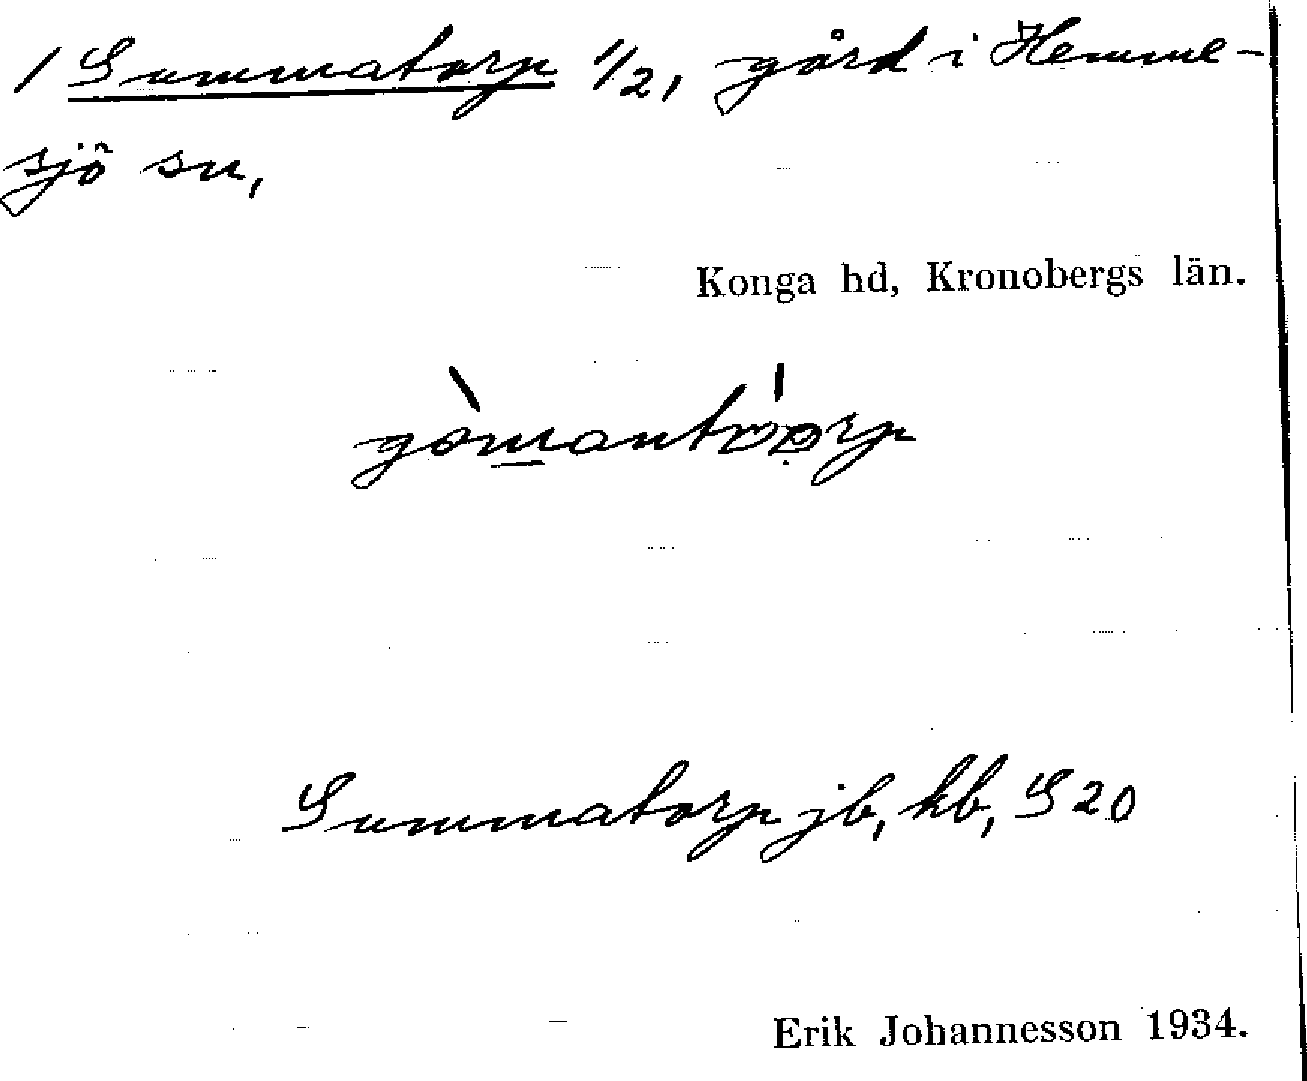 / Gummatorp 1/2, gård i Hemme-
sjö sn,
Konga hd, Kronobergs län.
Gummatorp jb, kb, G 20
Erik Johannesson 1934.